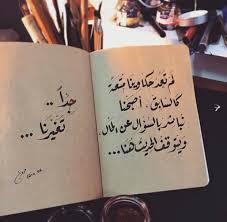 لم تعد حكاوينا ممتعة
كالسابق، أصبحنا
نباشر بالسؤال عن الحال
ويتوقف الحديث هنا ...
جداً ..
تغيّرنا ...